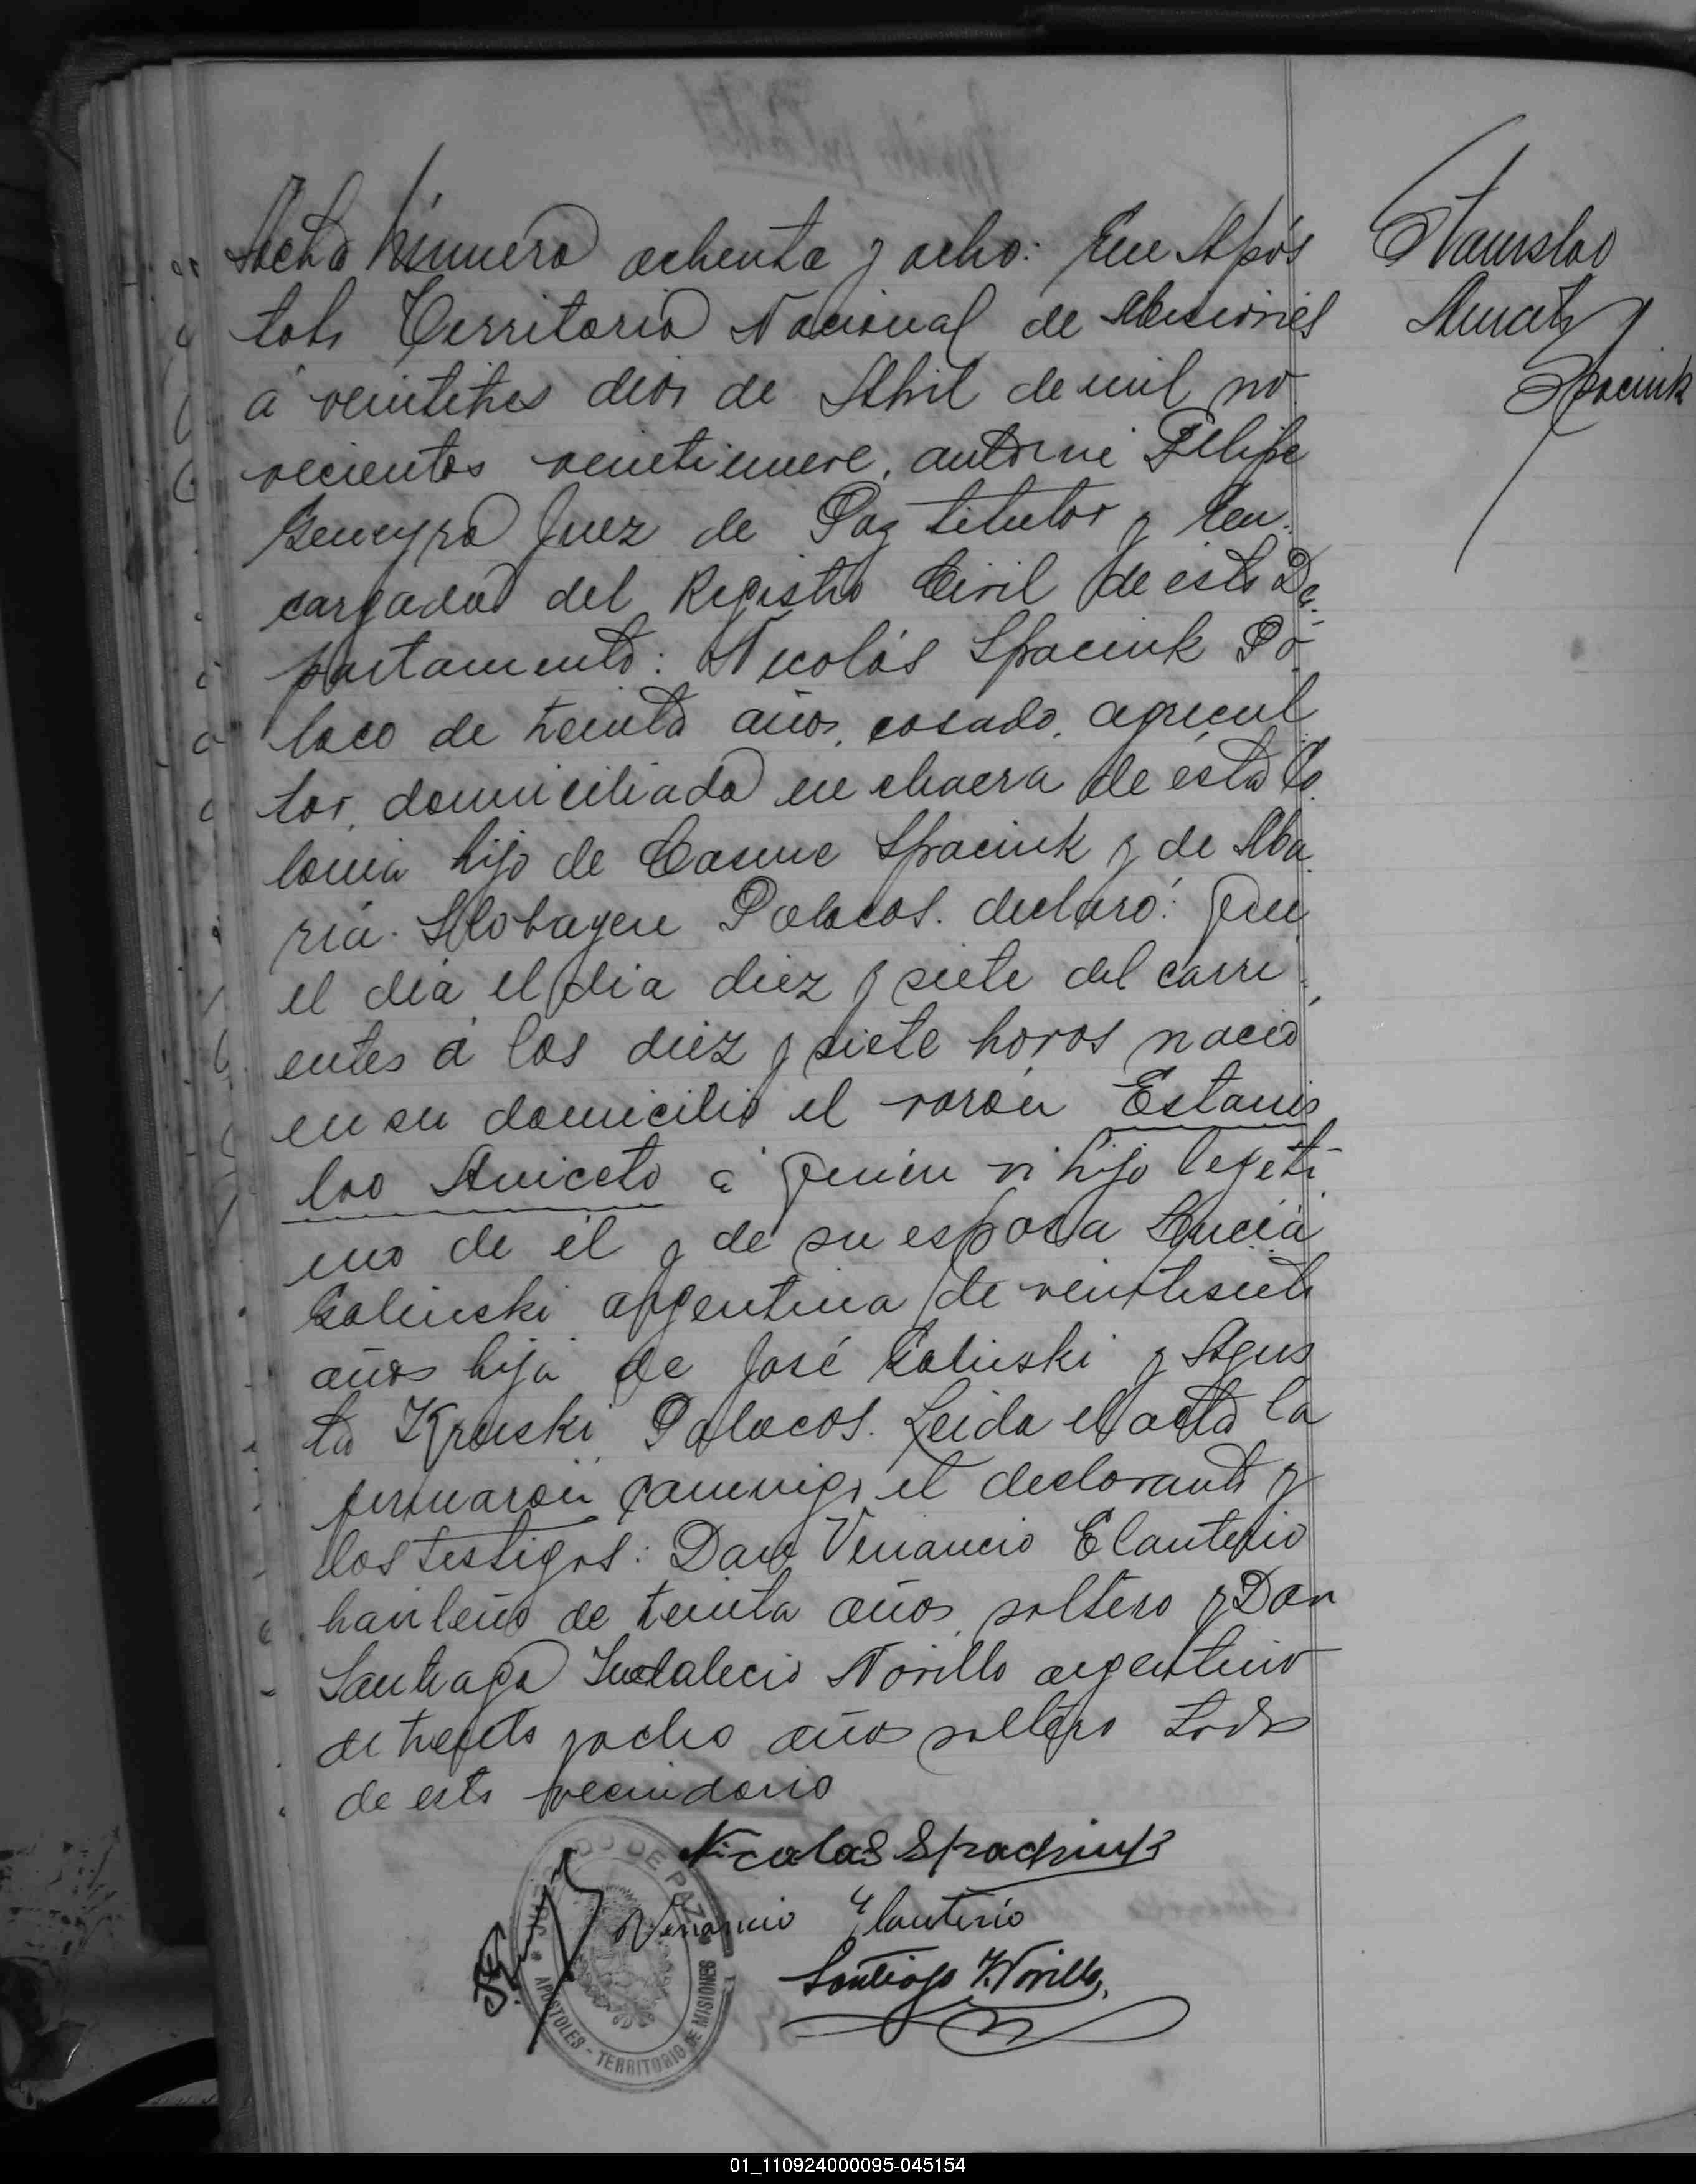 Acta Número ochenta y ocho: En Após
toles Territorio Nacional de Misiones
á veintitres dias de Abril de mil no
vecientos veintinueve, ante mi Felipe
Geneyro Juez de Paz titular y En
cargado del Registro Civil de este De
partamento: Nicolás Spaciuk Po
laco de treinta años, casado, agricul
tor, domiciliado en chacra de esta Co
lonia hijo de Cosme Spaciuk y de Ma
ria Polacos. declaró: Que
el dia el dia diez y siete del corri
entes á las diez y siete horas nació
en su domicilio el varón Estanis
lao Aniceto á quien vi hijo legiti
mo de él y de su esposa Lucia
Galinski argentina de veintisiete
años hija de José Galinski y Agus
ta Kruski Polacos. Leida el acta la
firmaron conmigo el declarante y
los testigos: Don Venancio Elauterio
de treinta años, soltero y Don
Santiago Indalecio Norillo argentino
de treinta y ocho años soltero todos
de este vecindario
Nicolas Spachiuk
Venancio Elauterio
Santiago I. Norillo
JUZGADO DE PAZ
* APOSTOLES - TERRITORIO DE MISIONES
Stanislao
Spaciuk
01_110924000095-045154